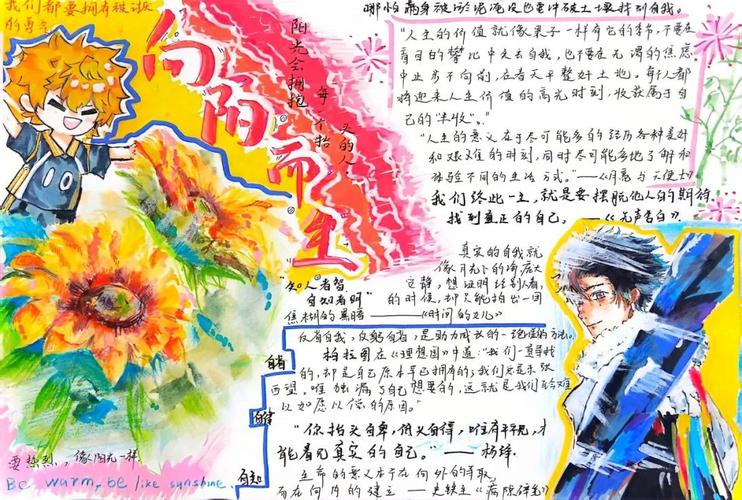 我们都要拥有被讨厌
的勇气
向阳而生
阳光会拥抱
每个抬
头的人.
哪怕
也要冲破土壤找到自我。
"人生的价值就像果子一样有它的季节,不要在
盲目的攀比中失去自我,也不要在无谓的焦虑
中止步不向前,应着天干整好土地。每个人都
将迎来人生价值的高光时刻,收获属于自
己的"丰收"。"
"人生的意义在于尽可能多的经历各种美好
和艰难的时刻,同时尽可能多地了解和
体验不同的生活方式。"——《月亮与六便士》
我们终此一生,就是要摆脱他人的期待
找到真正的自己。——《无声告白》
真实的自我就
像月光下的海
宁静,想证明给别人看,
的时候,却只能拍出一团
模糊的黑暗——《时间的女儿》
"知人者智,
自知者明"
反省自我,反躬自省,是助力成长的一
柏拉图在《理想国》中道:"我们一直寻找
的,却是自己原本早已拥有的;我们总是东张
西望,唯独漏了自己想要的,这就是我们至今难
以如愿以偿的原因。"
自省
自知
"你抬头自卑,低头自得,唯有平视,才
能看见真实的自己。"——杨绛
生命的意义不在向外的寻取,
而在向内的建立——史铁生《病隙碎笔》
要热烈,像阳光一样
Be warm, be like sunshine.
10